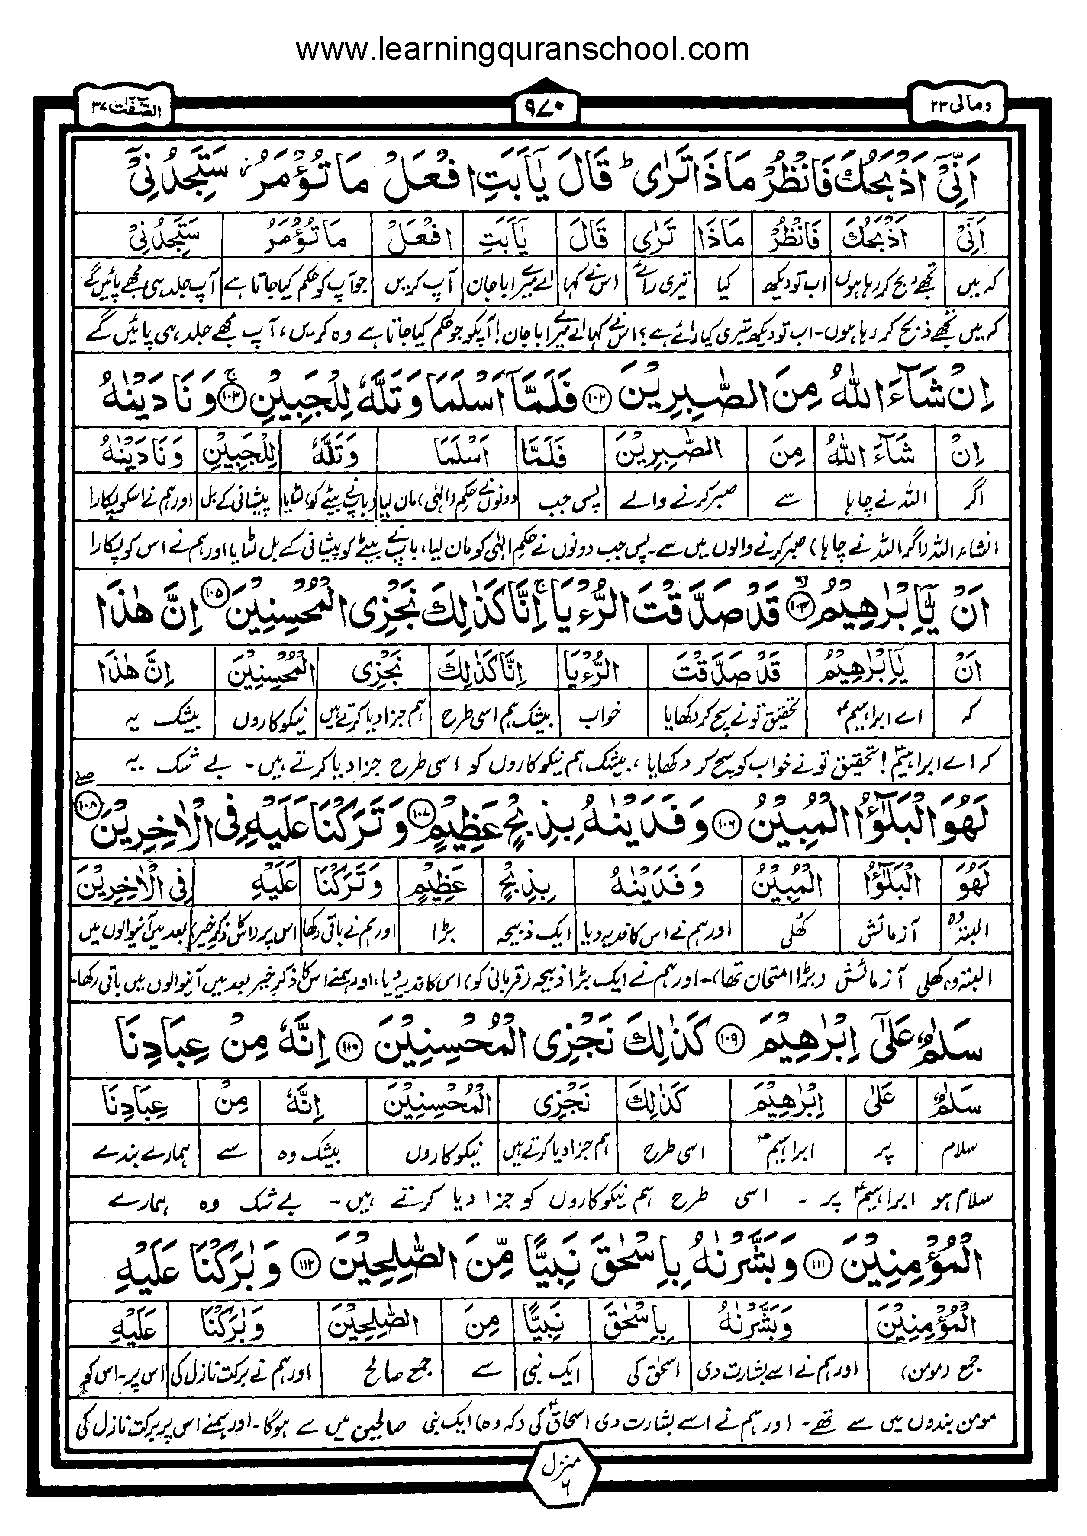 www.learningquranschool.com
ومالی ۲۳
۹۷۰
الصّٰفّٰت ۳۷
اَنِّیْۤ اَذْبَحُكَ فَانْظُرْ مَاذَا تَرٰی ؕ قَالَ یٰۤاَبَتِ افْعَلْ مَا تُؤْمَرُ ؗ سَتَجِدُنِیْۤ
اَنِّیْۤ اَذْبَحُكَ فَانْظُرْ مَاذَا تَرٰی قَالَ یٰۤاَبَتِ افْعَلْ مَا تُؤْمَرُ سَتَجِدُنِیْۤ
کہ میں تجھے ذبح کر رہا ہوں اب تو دیکھ کیا تیری رائے اس نے کہا اے میرے ابا جان آپ کریں جو آپ کو حکم کیا جاتا ہے آپ جلد ہی مجھے پائیں گے
کہ میں تجھے ذبح کر رہا ہوں۔ اب تو دیکھ تیری کیا رائے ہے؟ اس نے کہا اے میرے ابا جان! آپکو جو حکم کیا جاتا ہے وہ کریں، آپ مجھے جلد ہی پائیں گے
اِنْ شَآءَ اللّٰهُ مِنَ الصّٰبِرِیْنَ ۱۰۲ فَلَمَّاۤ اَسْلَمَا وَ تَلَّهٗ لِلْجَبِیْنِ ۱۰۳ وَ نَادَیْنٰهُ
اِنْ شَآءَ اللّٰهُ مِنَ الصّٰبِرِیْنَ فَلَمَّاۤ اَسْلَمَا وَتَلَّهٗ لِلْجَبِیْنِ وَ نَادَیْنٰهُ
اگر اللہ نے چاہا سے صبر کرنے والے پس جب دونوں نے حکم (الٰہی) مان لیا (باپ نے بیٹے کو) لٹایا پیشانی کے بل اور ہم نے اسکو پکارا
انشاء اللہ (اگر اللہ نے چاہا) صبر کرنے والوں میں سے۔ پس جب دونوں نے حکم الٰہی کو مان لیا، باپ نے بیٹے کو پیشانی کے بل لٹایا اور ہم نے اس کو پکارا
اَنْ یّٰۤاِبْرٰهِیْمُ ۱۰۴ قَدْ صَدَّقْتَ الرُّءْیَا ۚ اِنَّا كَذٰلِكَ نَجْزِی الْمُحْسِنِیْنَ ۱۰۵ اِنَّ هٰذَا
اَنْ یّٰۤاِبْرٰهِیْمُ قَدْ صَدَّقْتَ الرُّءْیَا اِنَّا كَذٰلِكَ نَجْزِی الْمُحْسِنِیْنَ اِنَّ هٰذَا
کہ اے ابراہیمؑ تحقیق تو نے سچ کر دکھایا خواب بیشک ہم اسی طرح ہم جزا دیا کرتے ہیں نیکوکاروں بیشک یہ
کہ اے ابراہیمؑ! تحقیق تو نے خواب کو سچ کر دکھایا، بیشک ہم نیکوکاروں کو اسی طرح جزا دیا کرتے ہیں۔ بے شک یہ
لَهُوَ الْبَلٰٓؤُا الْمُبِیْنُ ۱۰۶ وَ فَدَیْنٰهُ بِذِبْحٍ عَظِیْمٍ ۱۰۷ وَ تَرَكْنَا عَلَیْهِ فِی الْاٰخِرِیْنَ ۱۰۸
لَهُوَ الْبَلٰٓؤُا الْمُبِیْنُ وَ فَدَیْنٰهُ بِذِبْحٍ عَظِیْمٍ وَ تَرَكْنَا عَلَیْهِ فِی الْاٰخِرِیْنَ
البتہ وہ آزمائش کھلی اور ہم نے اس کا فدیہ دیا ایک ذبیحہ بڑا اور ہم نے باقی رکھا اس پر (اس کا ذکر خیر) بعد میں آنیوالوں میں
البتہ وہ کھلی آزمائش (بڑا امتحان تھا)۔ اور ہم نے ایک بڑا ذبیحہ (قربانی کو) اس کا فدیہ دیا، اور ہمنے اس کا ذکر خیر بعد میں آنیوالوں میں باقی رکھا۔
سَلٰمٌ عَلٰۤی اِبْرٰهِیْمَ ۱۰۹ كَذٰلِكَ نَجْزِی الْمُحْسِنِیْنَ ۱۱۰ اِنَّهٗ مِنْ عِبَادِنَا
سَلٰمٌ عَلٰۤی اِبْرٰهِیْمَ كَذٰلِكَ نَجْزِی الْمُحْسِنِیْنَ اِنَّهٗ مِنْ عِبَادِنَا
سلام پر ابراہیمؑ اسی طرح ہم جزا دیا کرتے ہیں نیکوکاروں بیشک وہ سے ہمارے بندے
سلام ہو ابراہیمؑ پر ۔ اسی طرح ہم نیکوکاروں کو جزا دیا کرتے ہیں۔ بے شک وہ ہمارے
الْمُؤْمِنِیْنَ ۱۱۱ وَ بَشَّرْنٰهُ بِاِسْحٰقَ نَبِیًّا مِّنَ الصّٰلِحِیْنَ ۱۱۲ وَ بٰرَكْنَا عَلَیْهِ
الْمُؤْمِنِیْنَ وَ بَشَّرْنٰهُ بِاِسْحٰقَ نَبِیًّا مِنَ الصّٰلِحِیْنَ وَ بٰرَكْنَا عَلَیْهِ
جمع (مومن) اور ہم نے اسے بشارت دی اسحٰق کی ایک نبی سے جمع صالح اور ہم نے برکت نازل کی اس پر۔ اس کو
مومن بندوں میں سے تھے۔ اور ہم نے اسے بشارت دی اسحاقؑ کی (کہ وہ) ایک نبی صالحین میں سے ہوگا۔ اور ہمنے اس پر برکت نازل کی
منزل ۶